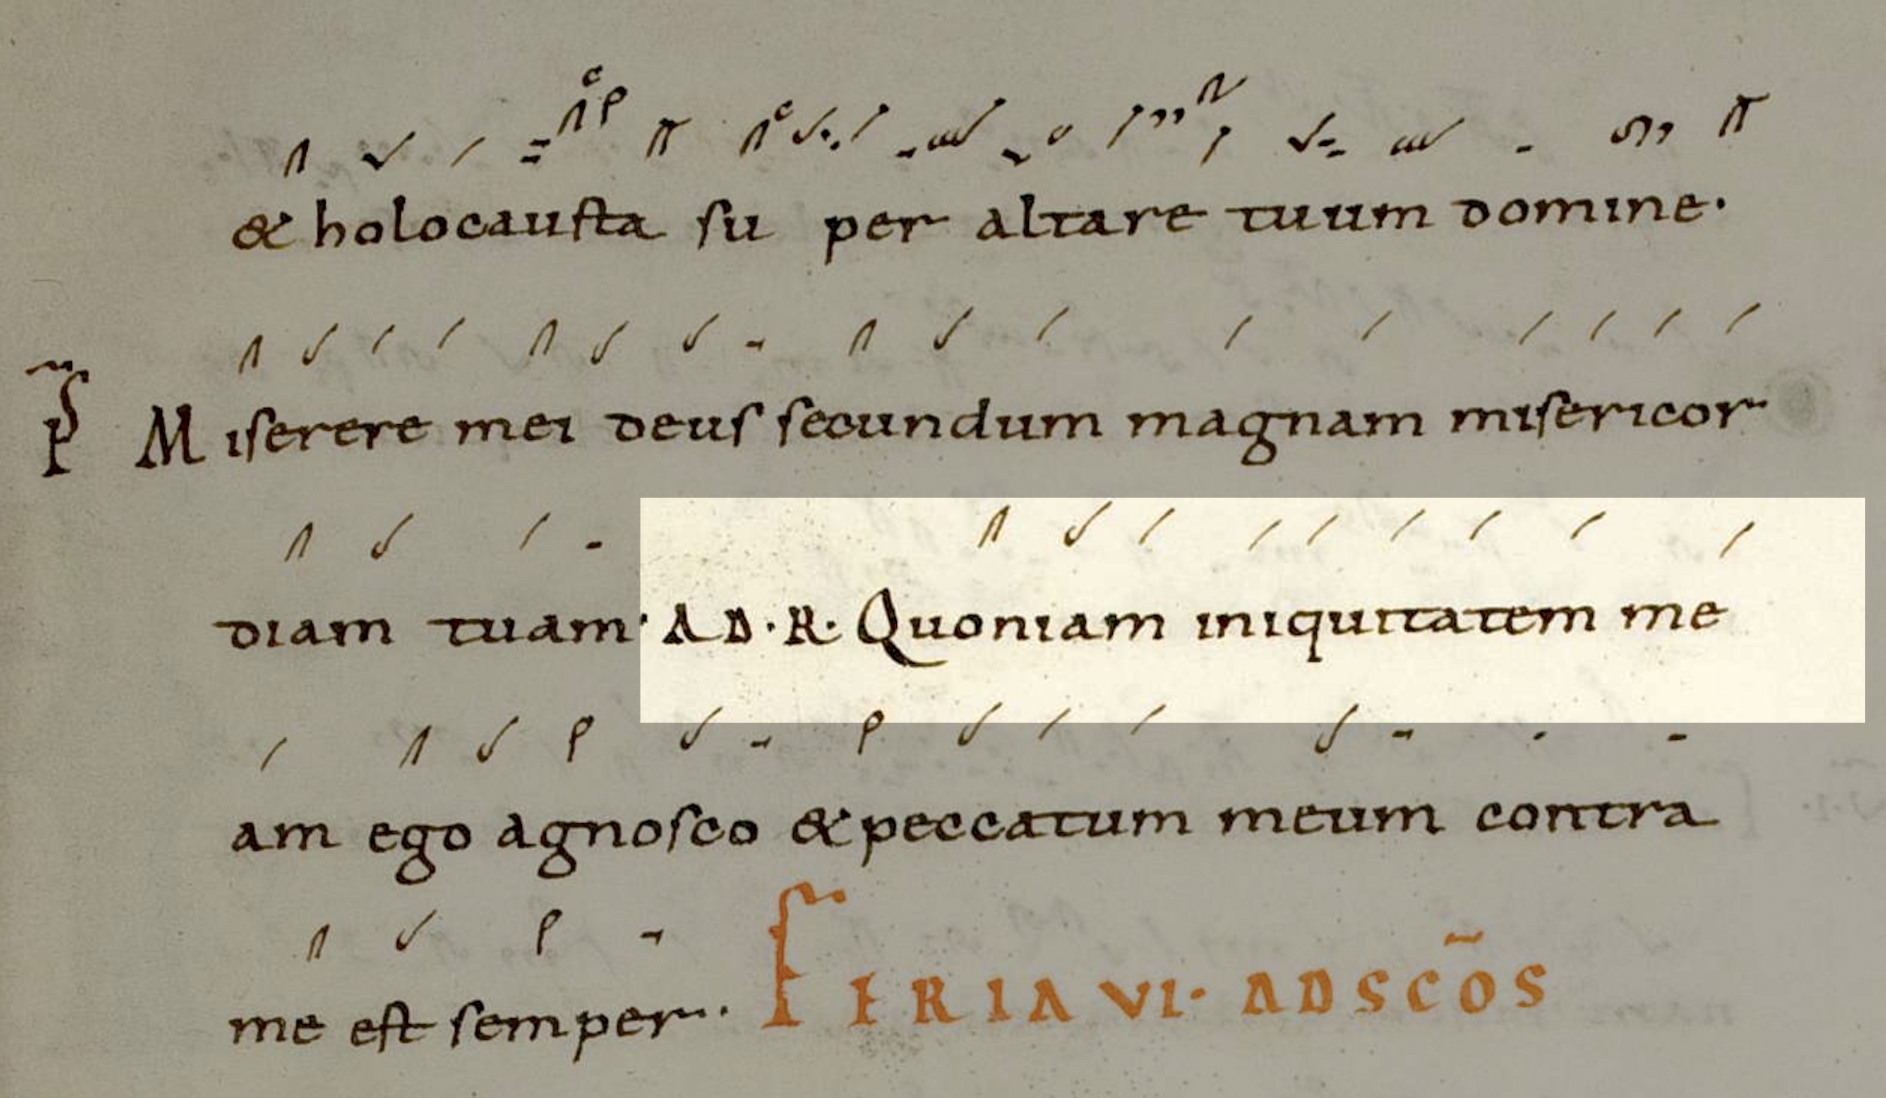 & holocauſta ſu per altare tuum domine·
Pſ Miſerere mei deuſ ſecundum magnam miſericor
diam tuam· AD·R· Quoniam iniquitatem me
am ego agnoſco & peccatum meum contra
me eſt ſemper·. FERIA VI· AD SCŌS